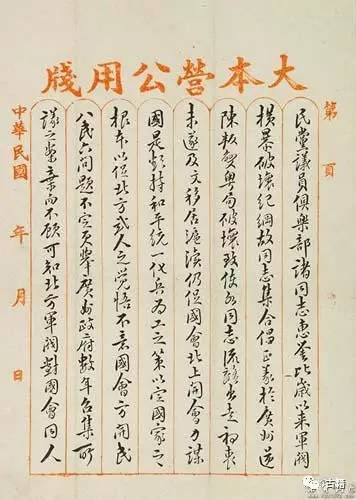 大本營公用牋
第 頁
民黨議員俱樂部諸同志惠鑒比歲以來軍閥
橫暴破壞紀綱故同志集合倡正義於廣州逆
陳叛變粵局破壞致使各同志流離出走初衷
未遂及文移居滬濱仍促國會北上開會力謀
國是持和平統一化兵為工之策以定國家之
根本以促北方武人之覺悟不意國會方開民
八民六問題不定舉廣州政府數年召集所
議之案棄而不顧可知北方軍閥對國會同人
中華民國 年 月 日